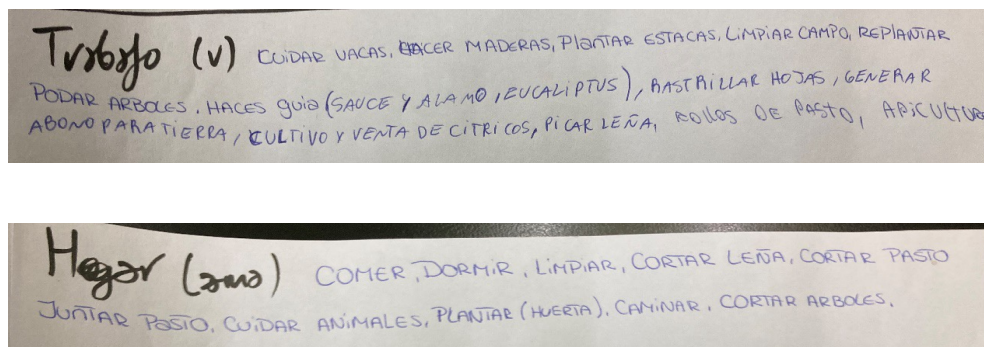 Trabajo (v) CUIDAR VACAS, HACER MADERAS, PlanTAR ESTACAS, LiMPIAR CAMPO, REPLANTAR
PODAR ARBOLES, HACES guia (SAUCE Y ALAMO, EUCALIPTUS), RASTRILLAR HOJAS, GENERAR
ABONO PARA TIERRA, CULTIVO Y VENTA DE CITRICOS, PICAR LEÑA, ROLLOS DE PASTO, APICULTURA
Hogar (amo) COMER, DORMIR, LIMPIAR, CORTAR LEÑA, CORTAR PASTO
JUNTAR PASTO, CUIDAR ANIMALES, PLANTAR (HUERTA), CAMINAR, CORTAR ARBOLES.